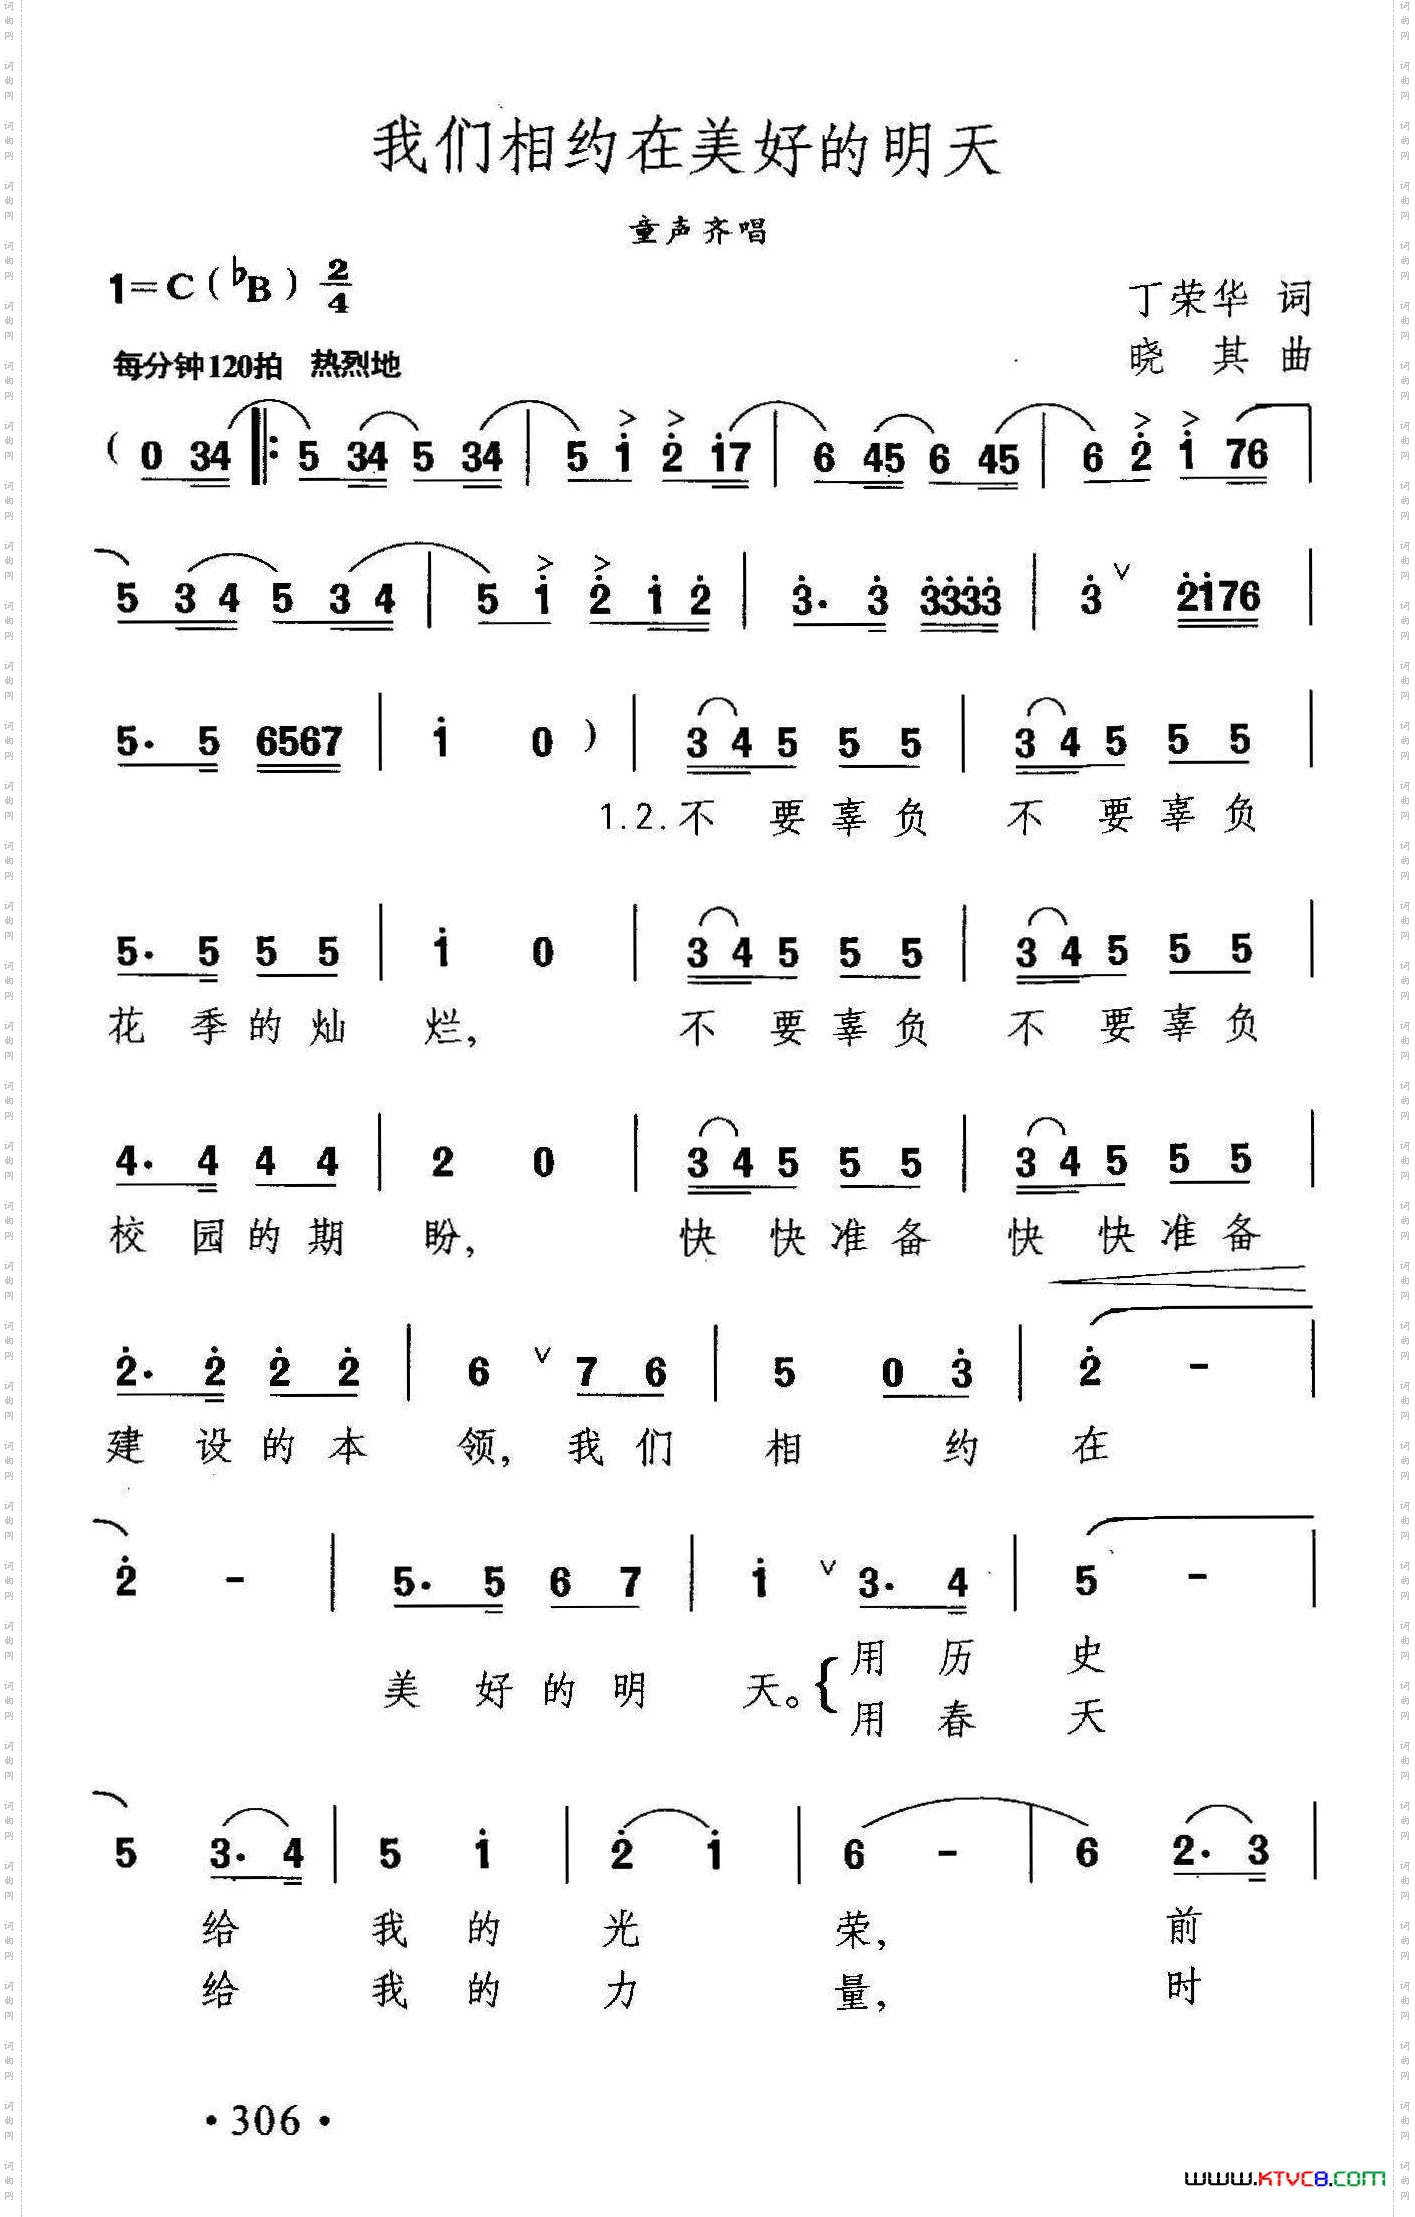 我们相约在美好的明天
童声齐唱
1=C(♭B) 2/4
丁荣华 词
每分钟120拍 热烈地
晓 其 曲
( 0 34 5 34 5 34 | 5 1̇ 2̇ 1̇7 | 6 45 6 45 | 6 2̇ 1̇ 76 |
5 3 4 5 3 4 | 5 1̇ 2̇ 1̇ 2̇ | 3̇. 3̇ 3̇3̇3̇3̇ | 3̇ ∨ 2̇1̇76 |
5. 5 6567 | 1̇ 0 ) | 3 4 5 5 5 | 3 4 5 5 5 |
1.2.不 要 辜 负 不 要 辜 负
5. 5 5 5 | 1̇ 0 | 3 4 5 5 5 | 3 4 5 5 5 |
花 季 的 灿 烂, 不 要 辜 负 不 要 辜 负
4. 4 4 4 | 2 0 | 3 4 5 5 5 | 3 4 5 5 5 |
校 园 的 期 盼, 快 快 准 备 快 快 准 备
2̇. 2̇ 2̇ 2̇ | 6 ∨ 7 6 | 5 0 3̇ | 2̇ - |
建 设 的 本 领, 我 们 相 约 在
2̇ - | 5. 5 6 7 | 1̇ ∨ 3. 4 | 5 - |
美 好 的 明 天。{
用 历 史
用 春 天
5 3. 4 | 5 1̇ | 2̇ 1̇ | 6 - | 6 2. 3 |
给 我 的 光 荣, 前
给 我 的 力 量, 时
·306·
www.KTVC8.COM